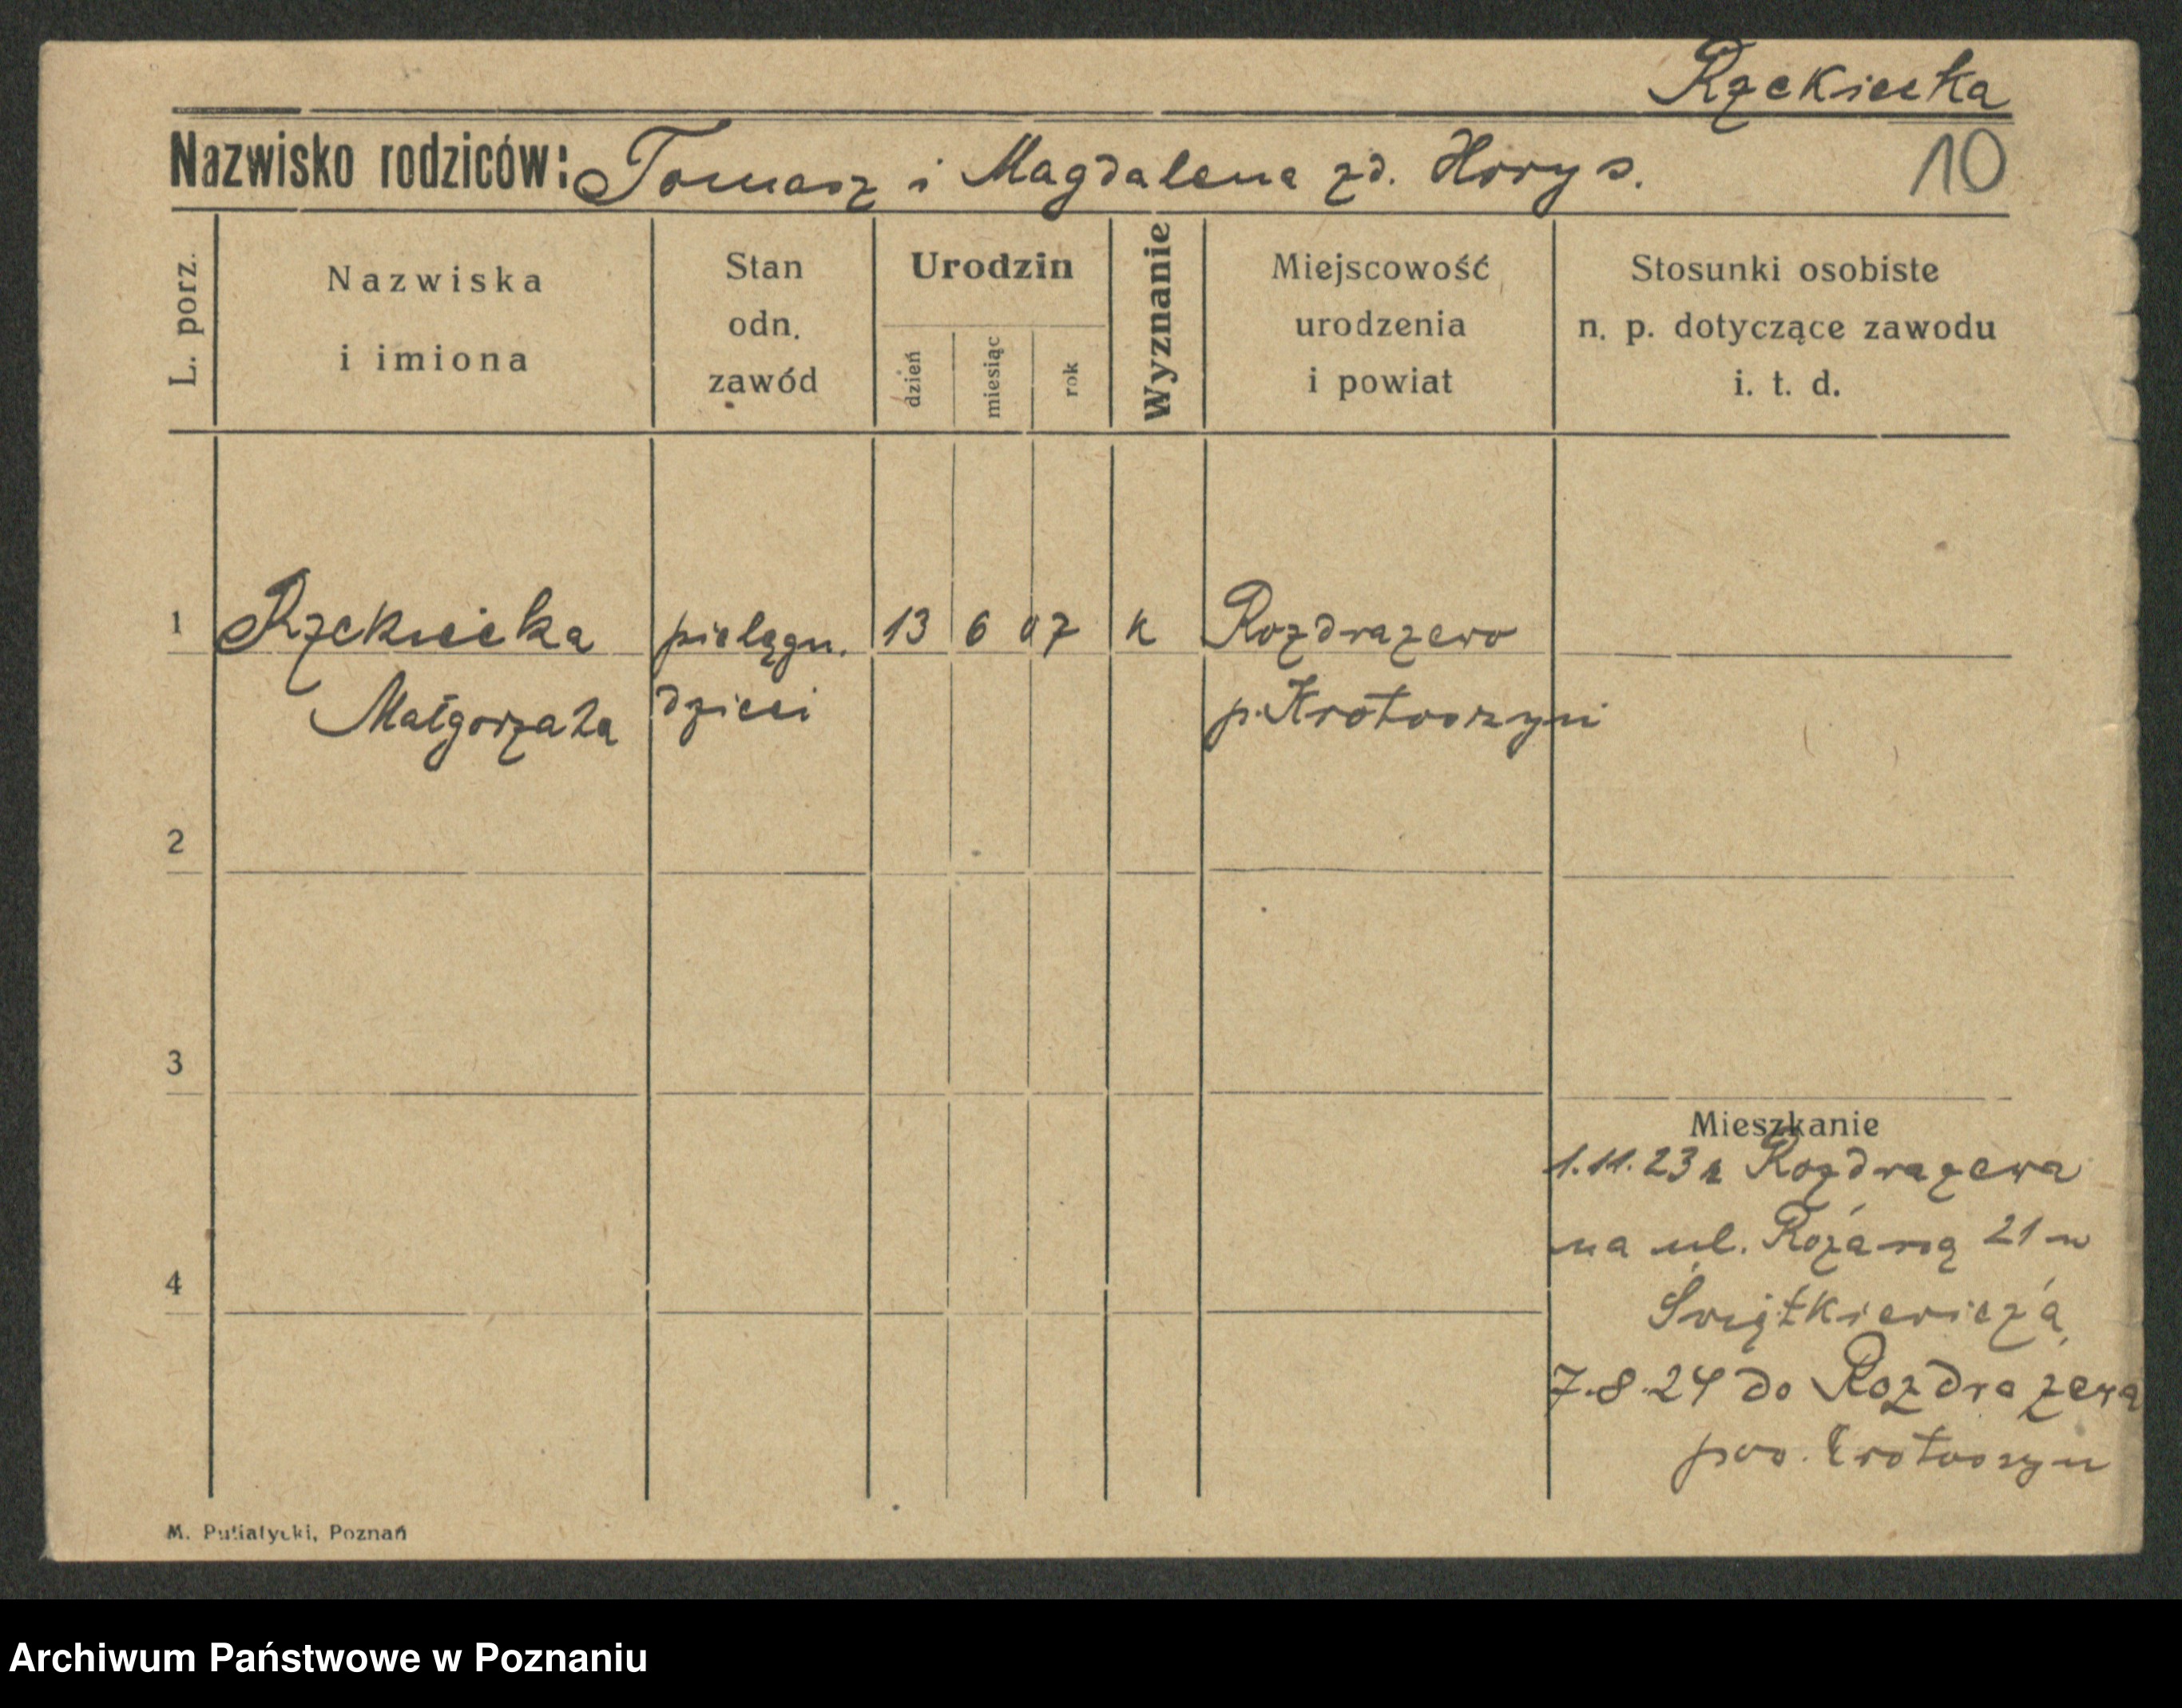 Rzekiecka
Nazwisko rodziców: Tomasz i Magdalena zd. Horys.
10
L. porz.
Nazwiska
i imiona
Stan
odn.
zawód
Urodzin
dzień
miesiąc
rok
Wyznanie
Miejscowość
urodzenia
i powiat
Stosunki osobiste
n. p. dotyczące zawodu
i. t. d.
1 Rzekiecka pielęgn. 13 6 07 k Rozdrazewo
Małgorzata dzieci p. Krotoszyn
2
3
4
Mieszkanie
1.11.23 z Rozdrazewa
na ul. Różaną 21 u
Świętkiewicza
7.8.24 do Rozdrazewa
pow. Krotoszyn
M. Putiatycki, Poznań
Archiwum Państwowe w Poznaniu